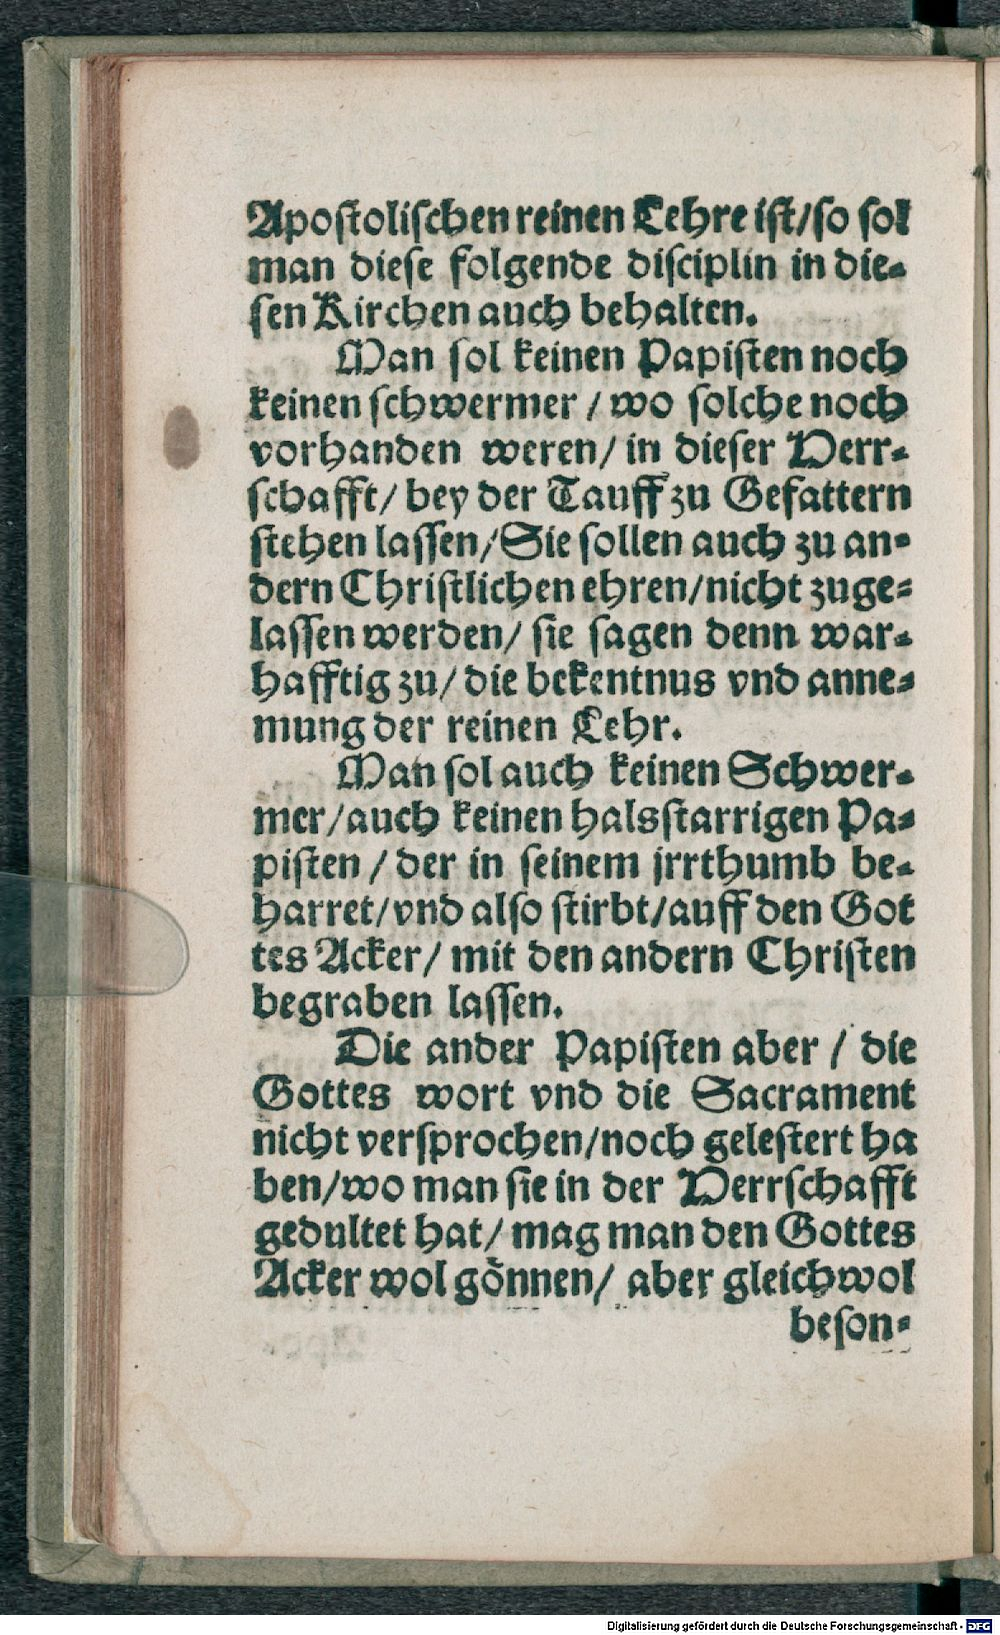 Apoſtoliſchen reinen Lehre iſt/ſo ſol
man dieſe folgende diſciplin in die-
ſen Kirchen auch behalten.
Man ſol keinen Papiſten noch
keinen ſchwermer / wo ſolche noch
vorhanden weren/ in dieſer Herr-
ſchafft/ bey der Tauff zu Gefattern
ſtehen laſſen/Sie ſollen auch zu an-
dern Chriſtlichen ehren/nicht zuge-
laſſen werden/ ſie ſagen denn war-
hafftig zu/ die bekentnus vnd anne-
mung der reinen Lehr.
Man ſol auch keinen Schwer-
mer/auch keinen halsſtarrigen Pa-
piſten / der in ſeinem jrrthumb be-
harret/vnd alſo ſtirbt/auff den Got
tes Acker/ mit den andern Chriſten
begraben laſſen.
Die ander Papiſten aber / die
Gottes wort vnd die Sacrament
nicht verſprochen/noch geleſtert ha
ben/wo man ſie in der Herrſchafft
gedultet hat/ mag man den Gottes
Acker wol gönnen/ aber gleichwol
beſon-
Digitalisierung gefördert durch die Deutsche Forschungsgemeinschaft - DFG